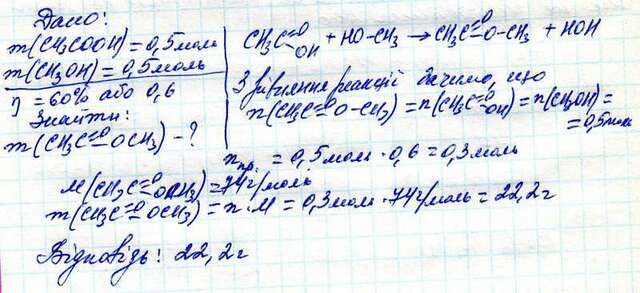 Дано:
m(CH₃COOH) = 0,5моль
m(CH₃OH) = 0,5моль
η = 60% або 0,6
Знайти:
m(CH₃C=O OCH₃) - ?
CH₃C=O OH + HO-CH₃ → CH₃C=O O-CH₃ + HOH
З рівняння реакції бачимо, що
n(CH₃C=O O-CH₃) = n(CH₃C=O OH) = n(CH₃OH) =
= 0,5моль
nпр. = 0,5моль · 0,6 = 0,3моль
M(CH₃C=O OCH₃) = 74г/моль
m(CH₃C=O OCH₃) = n·M = 0,3моль · 74г/моль = 22,2г
Відповідь: 22,2г